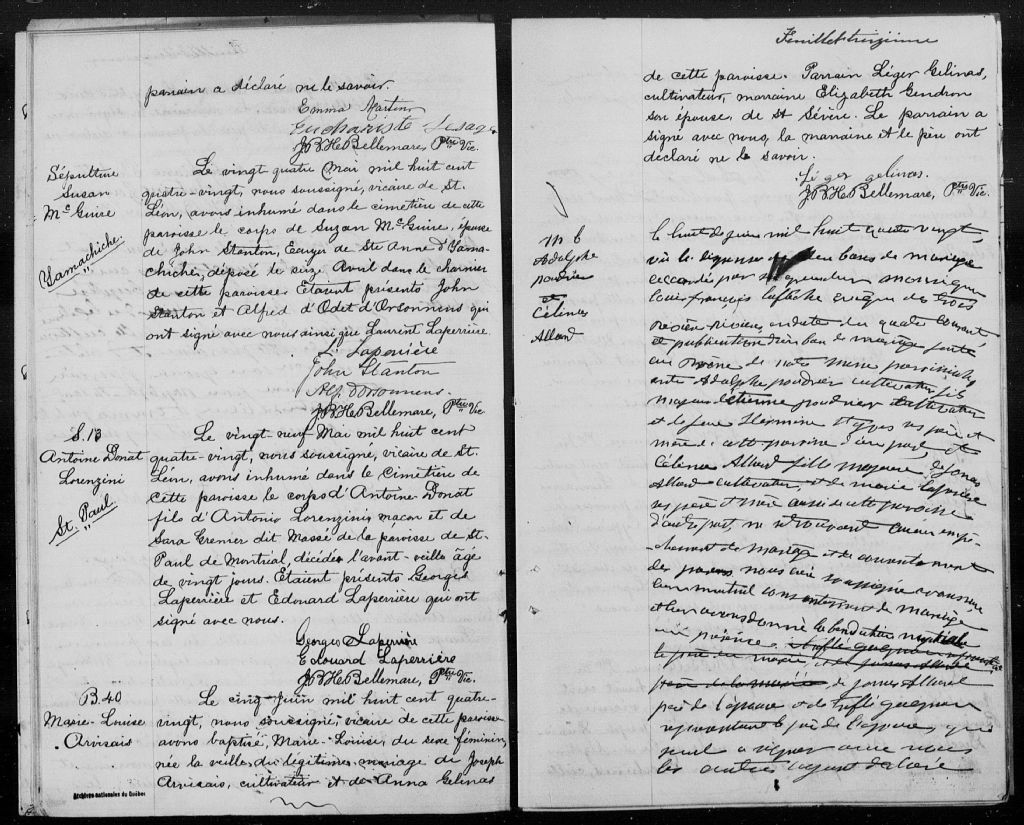 parrain a déclaré ne le savoir.
Emma Martin
Euchariste Lesage
JBHBellemare, Ptre Vic.
Sépulture
Susan
McGuire
Yamachiche.
Le vingt quatre Mai mil huit cent
quatre-vingt, nous soussigné, vicaire de St.
Léon, avons inhumé dans le cimetière de cette
paroisse le corps de Suzan McGuire, épouse
de John Stanton, Ecuyer de Ste Anne d'Yama-
chiche, déposé le seize Avril dans le charnier
de cette paroisse. Etaient présents John
Stanton et Alfred d'Odet d'Orsonnens qui
ont signé avec nous ainsi que Laurent Laperrière.
Lt Laperrière
John Stanton
Alf. D'Orsonnens.
JBHBellemare, Ptre Vic
S. 13
Antoine Donat
Lorenzini
St. Paul.
Le vingt-neuf Mai mil huit cent
quatre-vingt, nous soussigné, vicaire de St.
Léon, avons inhumé dans le Cimetière de
cette paroisse le corps d'Antoine Donat
fils d'Antonio Lorenzini, maçon et de
Sara Grenier dit Massé de la paroisse de St-
Paul de Montréal, décédé l'avant-veille âgé
de vingt jours. Etaient présents Georges
Laperrière et Edouard Laperrière qui ont
signé avec nous.
Georges Laperrière
Edouard Laperrière
JBHBellemare, Ptre Vic.
B. 40
Marie-Louise
Arvisais
Le cinq Juin mil huit cent quatre-
vingt, nous soussigné, vicaire de cette paroisse
avons baptisé, Marie-Louise, du sexe féminin,
née la veille, du légitime mariage de Joseph
Arvisais, cultivateur et de Anna Gelinas
Archives nationales du Québec
Feuillet treizième
de cette paroisse. Parrain Léger Gelinas,
cultivateur, marraine Elizabeth Gendron
son épouse, de St Sévère. Le parrain a
signé avec nous, la marraine et le père ont
déclaré ne le savoir.
Léger gelinas.
JBHBellemare, Ptre Vic.
m 6
Adolphe
poudrier
et
Célina
Allard
le huit de juin mil huit cent quatre vingt,
vu la dispense de deux bans de mariage
accordée par monseigneur
Louis françois lafleche evêque des trois
Rivières en date du quatre courant
et publication d'un ban de mariage faite
au prône de notre messe paroissiale
entre Adolphe poudrier cultivateur fils
majeur d'Etienne poudrier cultivateur
et de feue Hermine ses père et
mère de cette paroisse d'une part, et
Célina Allard fille majeure de Jonas
Allard cultivateur et de marie Laperrière
ses père et mère aussi de cette paroisse
d'autre part, ne découvrant aucun empê-
chement de mariage et du consentement
des parens nous curé soussigné avons reçu
leur mutuel consentement de mariage
et leur avons donné la bénédiction nuptiale
en présence
le père du marié, et de Jonas Allard
père de la mariée de Jonas Allard
père de l'épouse et de
représentant le père de l'époux, qui
seul a signé avec nous
les autres ayant déclaré